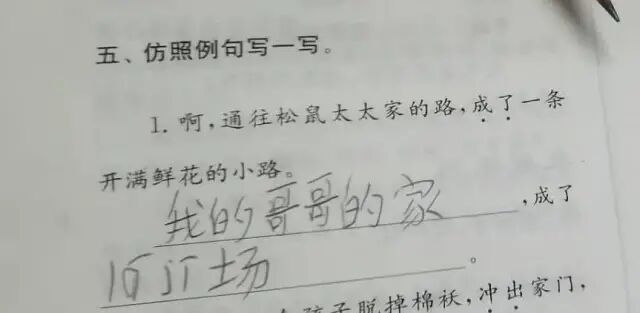 五、仿照例句写一写。
1. 啊，通往松鼠太太家的路，成了一条
开满鲜花的小路。
我的哥哥的家，成了
场。
孩子脱掉棉袄，冲出家门，